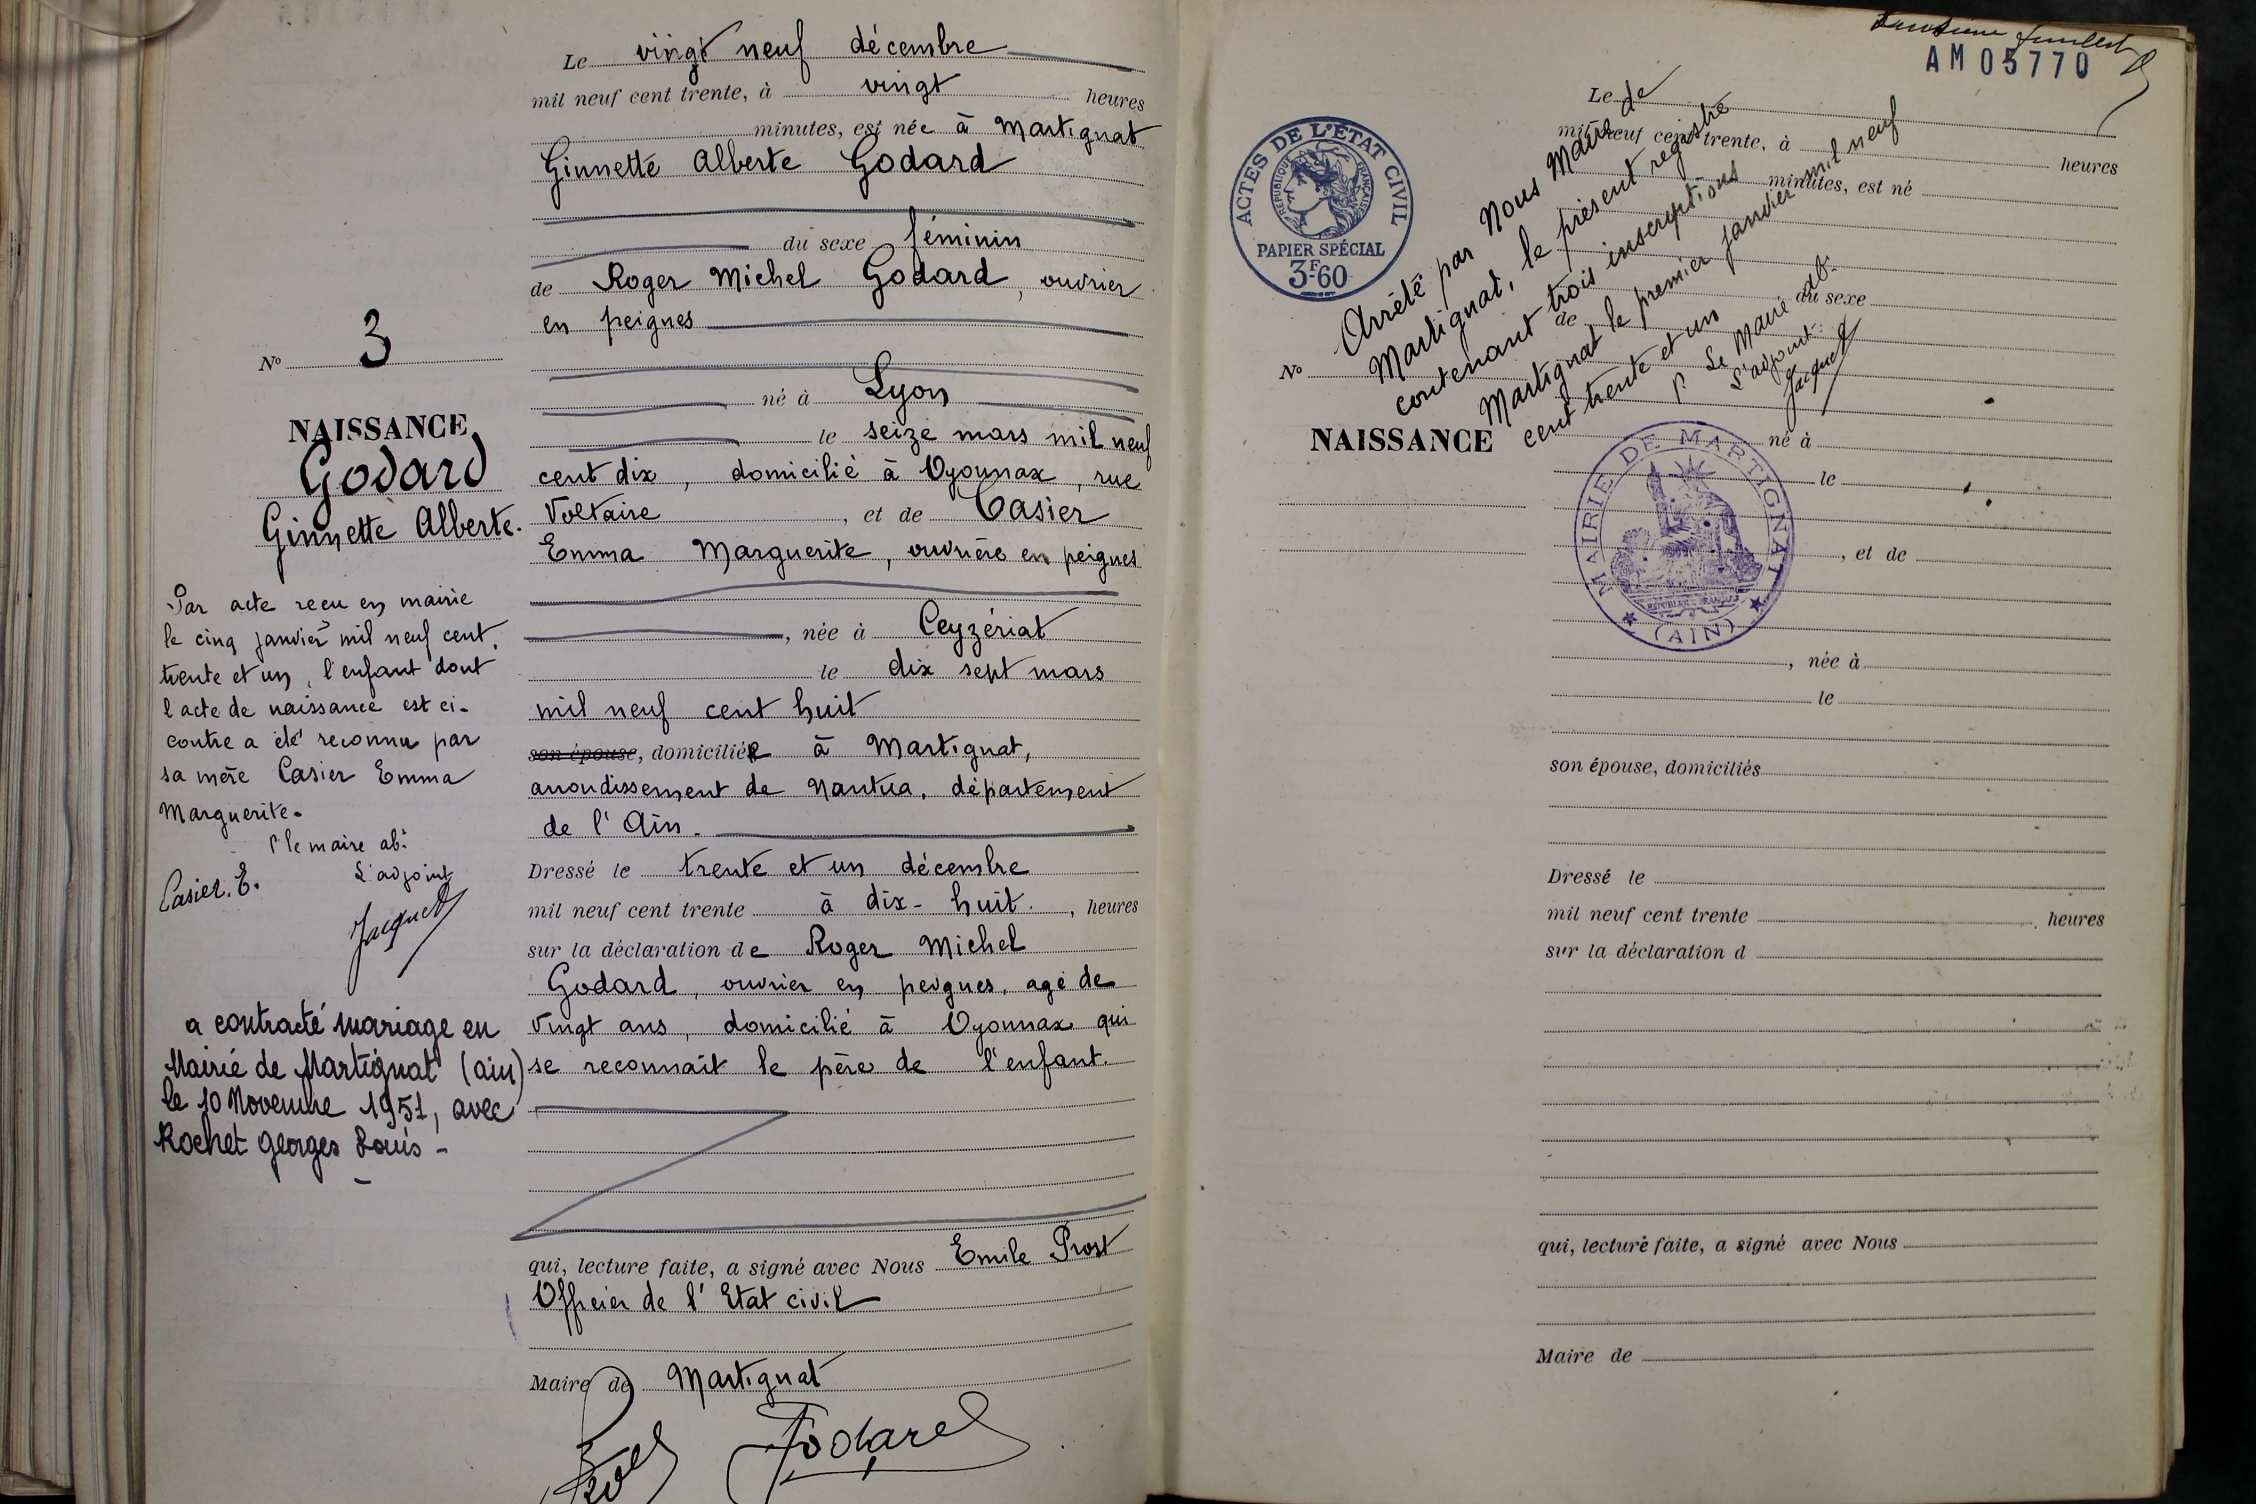 Le vingt neuf décembre
mil neuf cent trente, à vingt heures
minutes, est née à Martignat
Ginnette Alberte Godard
du sexe féminin
de Roger Michel Godard, ouvrier
en peignes
né à Lyon
le seize mars mil neuf
cent dix, domicilié à Oyonnax, rue
Voltaire, et de Casier
Emma Marguerite, ouvrière en peignes
, née à Ceyzériat
le dix sept mars
mil neuf cent huit
son épouse, domiciliée à Martignat,
arrondissement de Nantua, département
de l'Ain.
Dressé le trente et un décembre
mil neuf cent trente à dix-huit, heures
sur la déclaration de Roger Michel
Godard, ouvrier en peignes, agé de
vingt ans, domicilié à Oyonnax qui
se reconnaît le père de l'enfant.
qui, lecture faite, a signé avec Nous Emile Prost
Officier de l'Etat civil
Maire de Martignat
Godard
No 3
NAISSANCE
Godard
Ginnette Alberte.
Par acte recu en mairie
le cinq janvier mil neuf cent
trente et un, l'enfant dont
l'acte de naissance est ci-
contre a été reconnu par
sa mère Casier Emma
Marguerite.
P le maire ab.
L'adjoint
Casier. E.
Jacquet
a contracté mariage en
Mairie de Martignat (ain)
le 10 Novembre 1951, avec
Rochet Georges Louis -
AM05770
ACTES DE L'ETAT CIVIL
REPUBLIQUE FRANÇAISE
PAPIER SPÉCIAL
3F60
Arrêté par Nous Maire de
Martignat, le présent registre
contenant trois inscriptions
Martignat le premier janvier mil neuf
cent trente et un
P. Le Maire ab.
L'adjoint:
Jacquet
MAIRIE DE MARTIGNAT
(AIN)
No
NAISSANCE
Le
mil neuf cent trente, à heures
minutes, est né
du sexe
de
né à
le
, et de
, née à
le
son épouse, domiciliés
Dressé le
mil neuf cent trente , heures
sur la déclaration d
qui, lecture faite, a signé avec Nous
Maire de